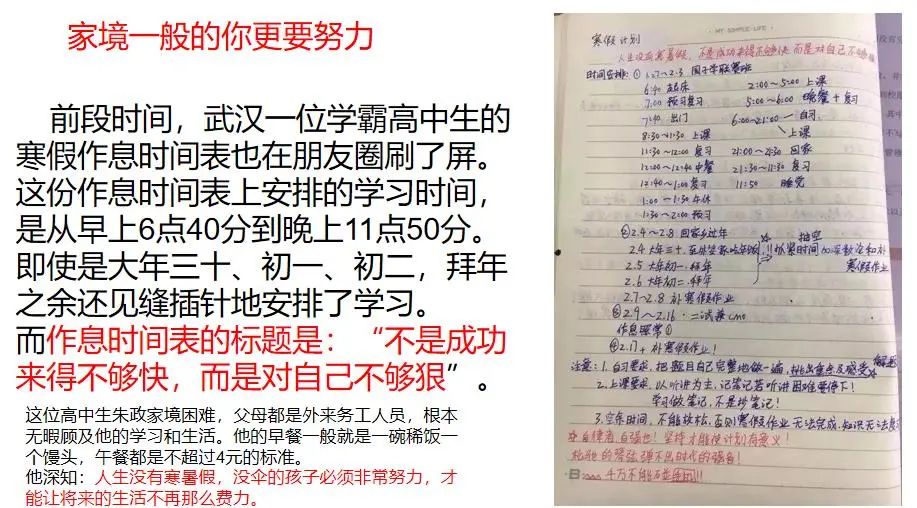 家境一般的你更要努力
前段时间，武汉一位学霸高中生的
寒假作息时间表也在朋友圈刷了屏。
这份作息时间表上安排的学习时间，
是从早上6点40分到晚上11点50分。
即使是大年三十、初一、初二，拜年
之余还见缝插针地安排了学习。
而作息时间表的标题是：“不是成功
来得不够快，而是对自己不够狠”。
这位高中生朱政家境困难，父母都是外来务工人员，根本
无暇顾及他的学习和生活。他的早餐一般就是一碗稀饭一
个馒头，午餐都是不超过4元的标准。
他深知：人生没有寒暑假，没伞的孩子必须非常努力，才
能让将来的生活不再那么费力。
MY SIMPLE LIFE
寒假计划
人生没有寒暑假，不是成功来得不够快而是对自己不够狠
时间安排：① 1.27~2.3
6:40 起床 2:00~5:00 上课
7:00 预习复习 5:00~6:00 晚餐+复习
7:40 出门 6:00~21:00 自习
8:30~11:30 上课 上课
11:30~12:00 复习 21:00~21:30 回家
12:00~12:40 中餐 21:30~11:30 复习
12:40~1:00 复习 11:50 睡觉
1:00~1:30 午休
1:30~2:00 预习
② 2.4~2.8 回家乡过年 抽空
2.4 大年三十 抓紧时间
2.5 大年初一 拜年 寒假作业
2.6 大年初二 拜年
2.7~2.8 补寒假作业
③ 2.9~2.16
作息照常①
④ 2.17+ 补寒假作业！
注意：1. 自习要求，把题目自己完整地做一遍，挑出重点及感受
2. 上课要求，以听讲为主，记笔记若听讲困难要停下！
学习做笔记，不是抄笔记！
3. 空余时间，不能放松，否则寒假作业无法完成，知识无法复习
自律者，自强也！坚持才能使计划有意义！
的琴弦弹不出时代的强音！
千万不能